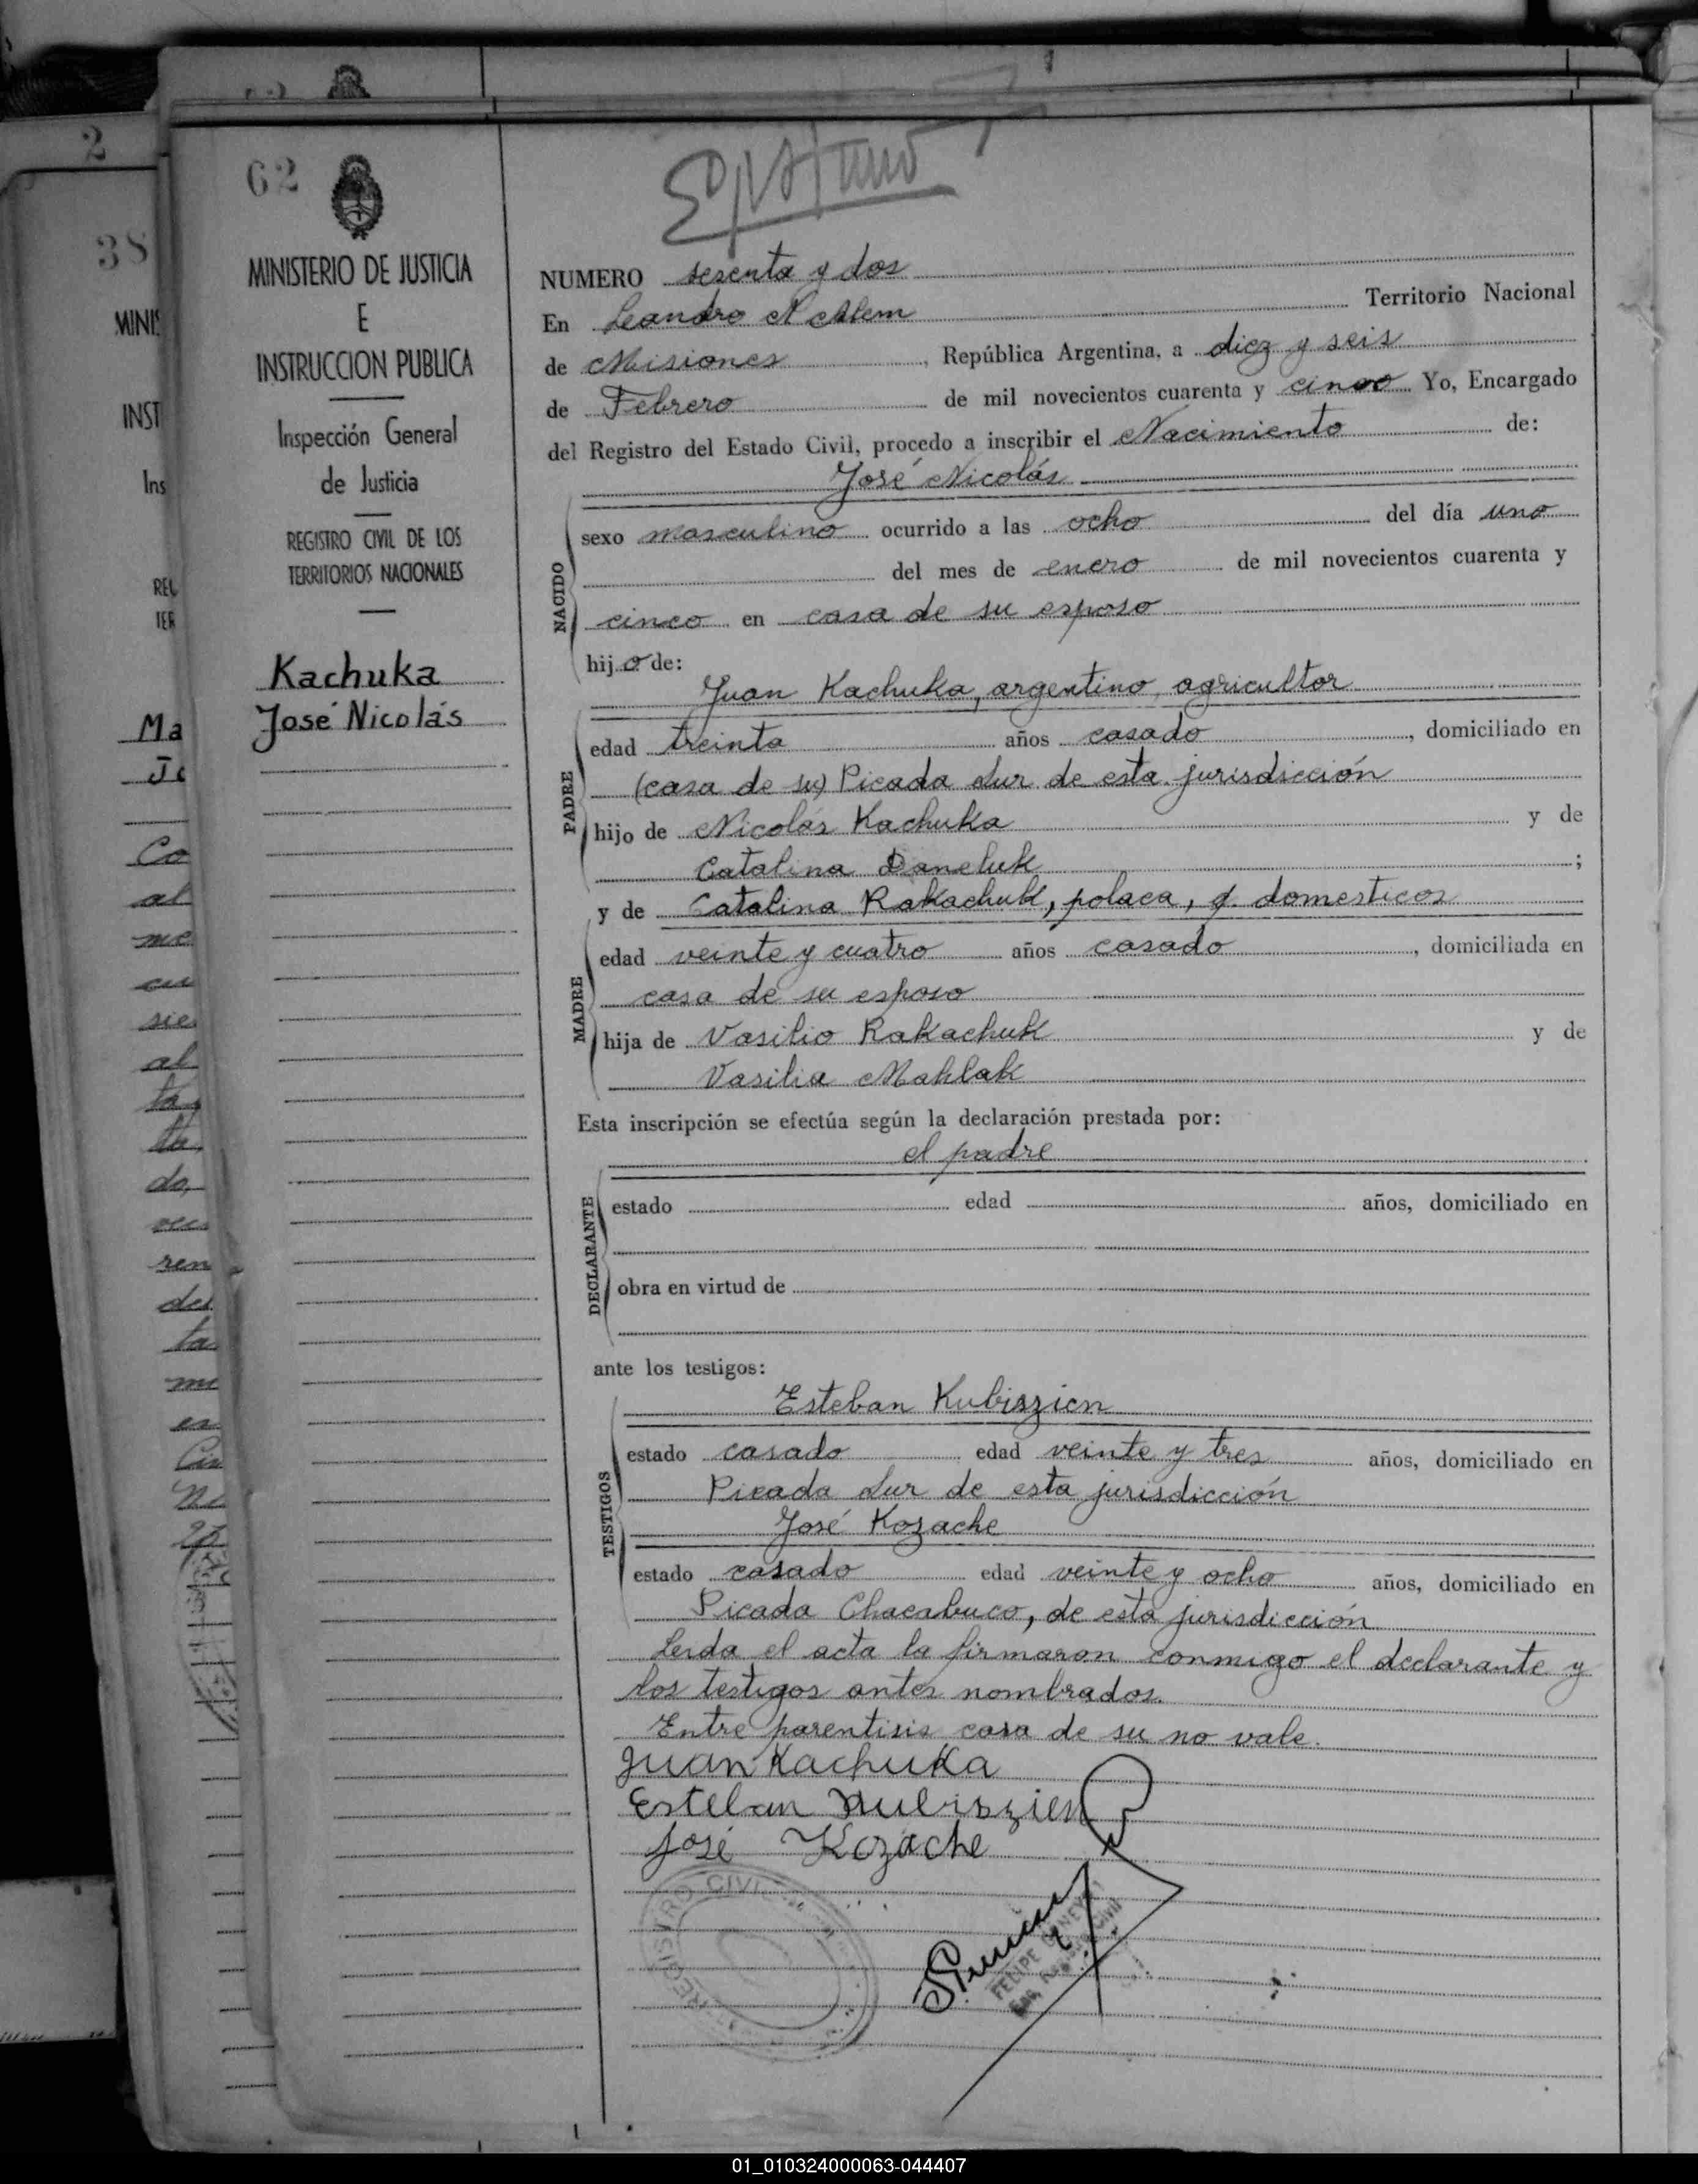 62
MINISTERIO DE JUSTICIA
E
INSTRUCCION PUBLICA
Inspección General
de Justicia
REGISTRO CIVIL DE LOS
TERRITORIOS NACIONALES
Kachuka
José Nicolás
NUMERO sesenta y dos
En Leandro N Alem Territorio Nacional
de Misiones, República Argentina, a diez y seis
de Febrero de mil novecientos cuarenta y cinco Yo, Encargado
del Registro del Estado Civil, procedo a inscribir el Nacimiento de:
José Nicolás
NACIDO
sexo masculino ocurrido a las ocho del día uno
del mes de enero de mil novecientos cuarenta y
cinco en casa de su esposo
hijo de:
Juan Kachuka, argentino, agricultor
PADRE
edad treinta años casado, domiciliado en
(casa de su) Picada Sur de esta jurisdicción
hijo de Nicolás Kachuka y de
Catalina Daneluk;
y de Catalina Rakachuk, polaca, q. domesticos
MADRE
edad veinte y cuatro años casado, domiciliada en
casa de su esposo
hija de Vasilio Rakachuk y de
Vasilia Mahlak
Esta inscripción se efectúa según la declaración prestada por:
el padre
DECLARANTE
estado edad años, domiciliado en
obra en virtud de
ante los testigos:
TESTIGOS
Esteban Kubiszien
estado casado edad veinte y tres años, domiciliado en
Picada Sur de esta jurisdicción
José Kozache
estado casado edad veinte y ocho años, domiciliado en
Picada Chacabuco, de esta jurisdicción
Leida el acta la firmaron conmigo el declarante y
los testigos antes nombrados.
Entre parentisis casa de su no vale.
Juan Kachuka
Esteban Kubiszien
José Kozache
REGISTRO CIVIL
FELIPE
2
38
MINIS
INST
Ins
Ma
Co
al
me
cu
sie
al
ta
do,
ren
del
ta
mi
es
01_010324000063-044407